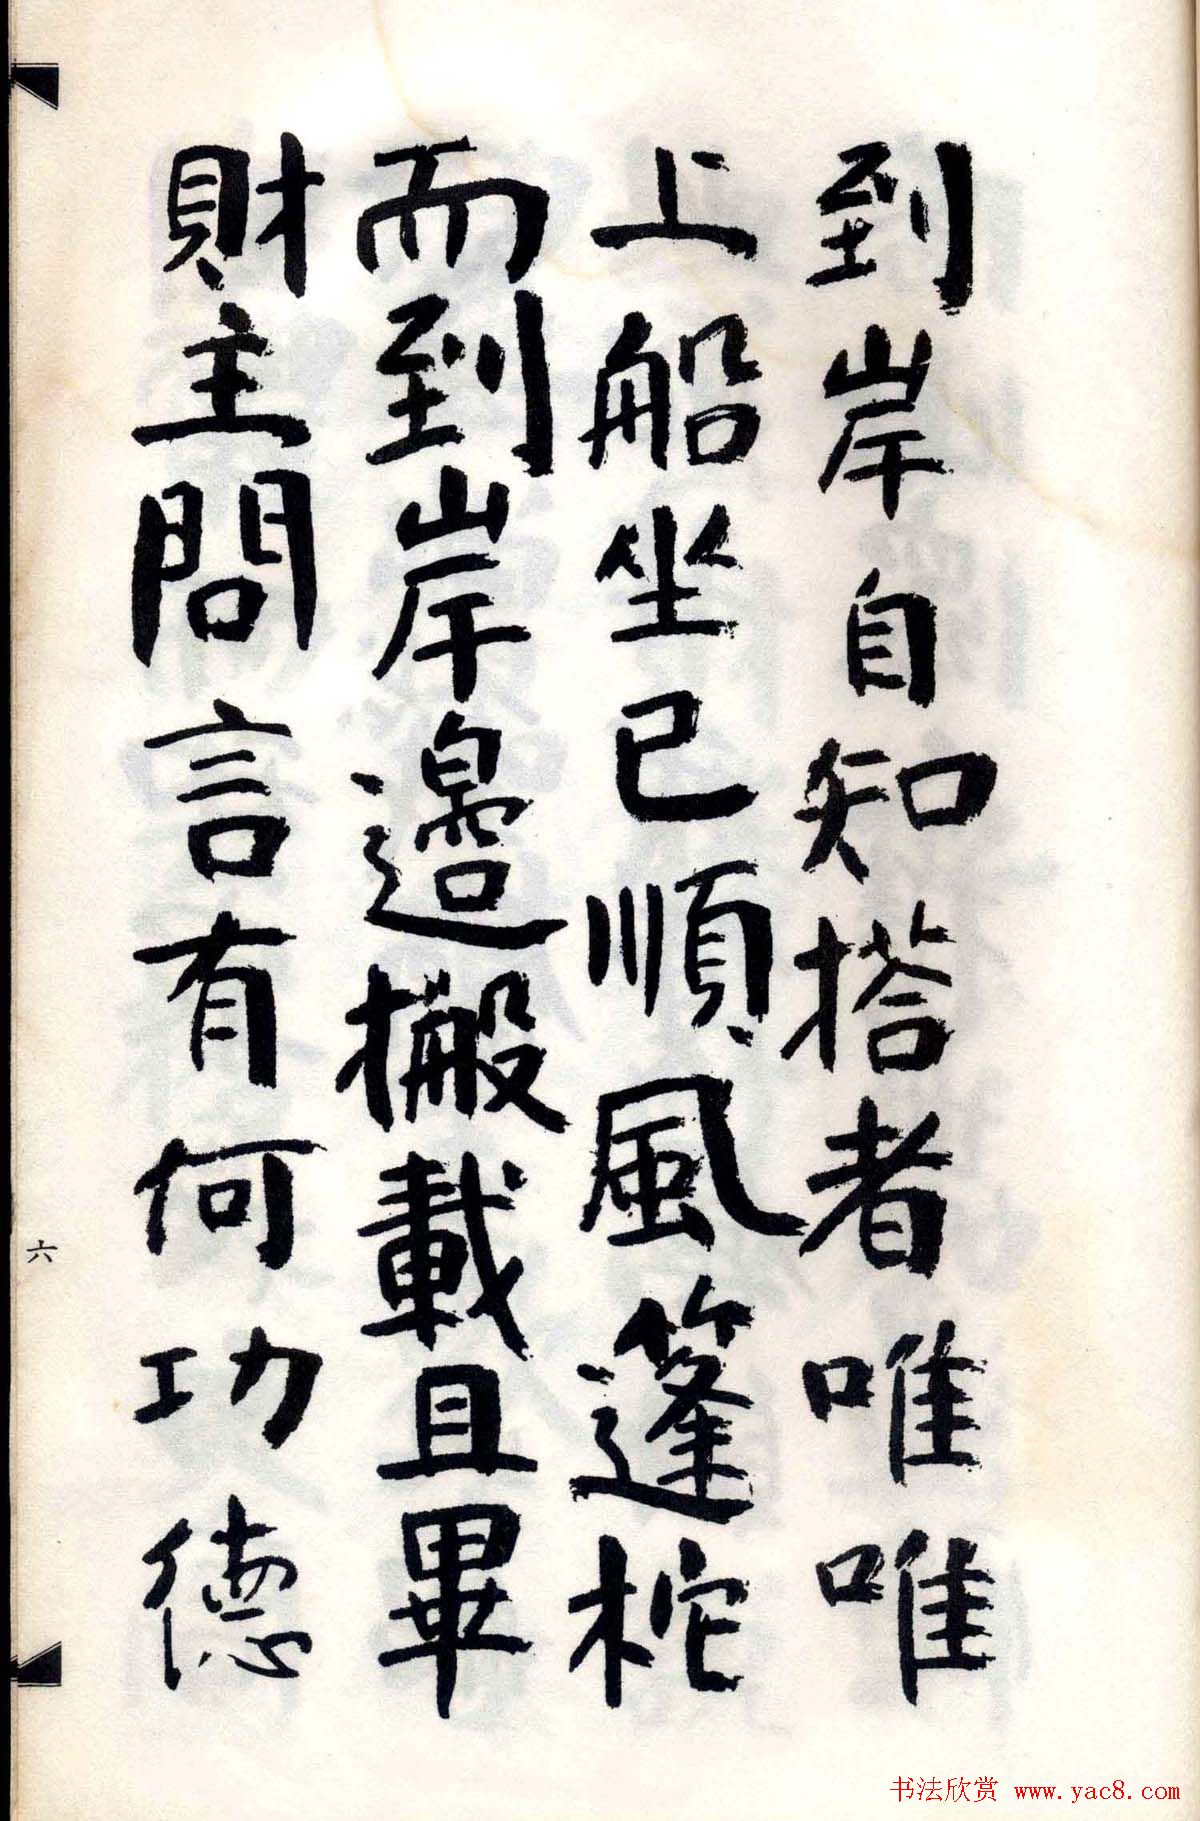 到岸自知搭者唯唯
上船坐已順風篷柁
而到岸邊搬載且畢
財主問言有何功德
六
书法欣赏 www.yac8.com